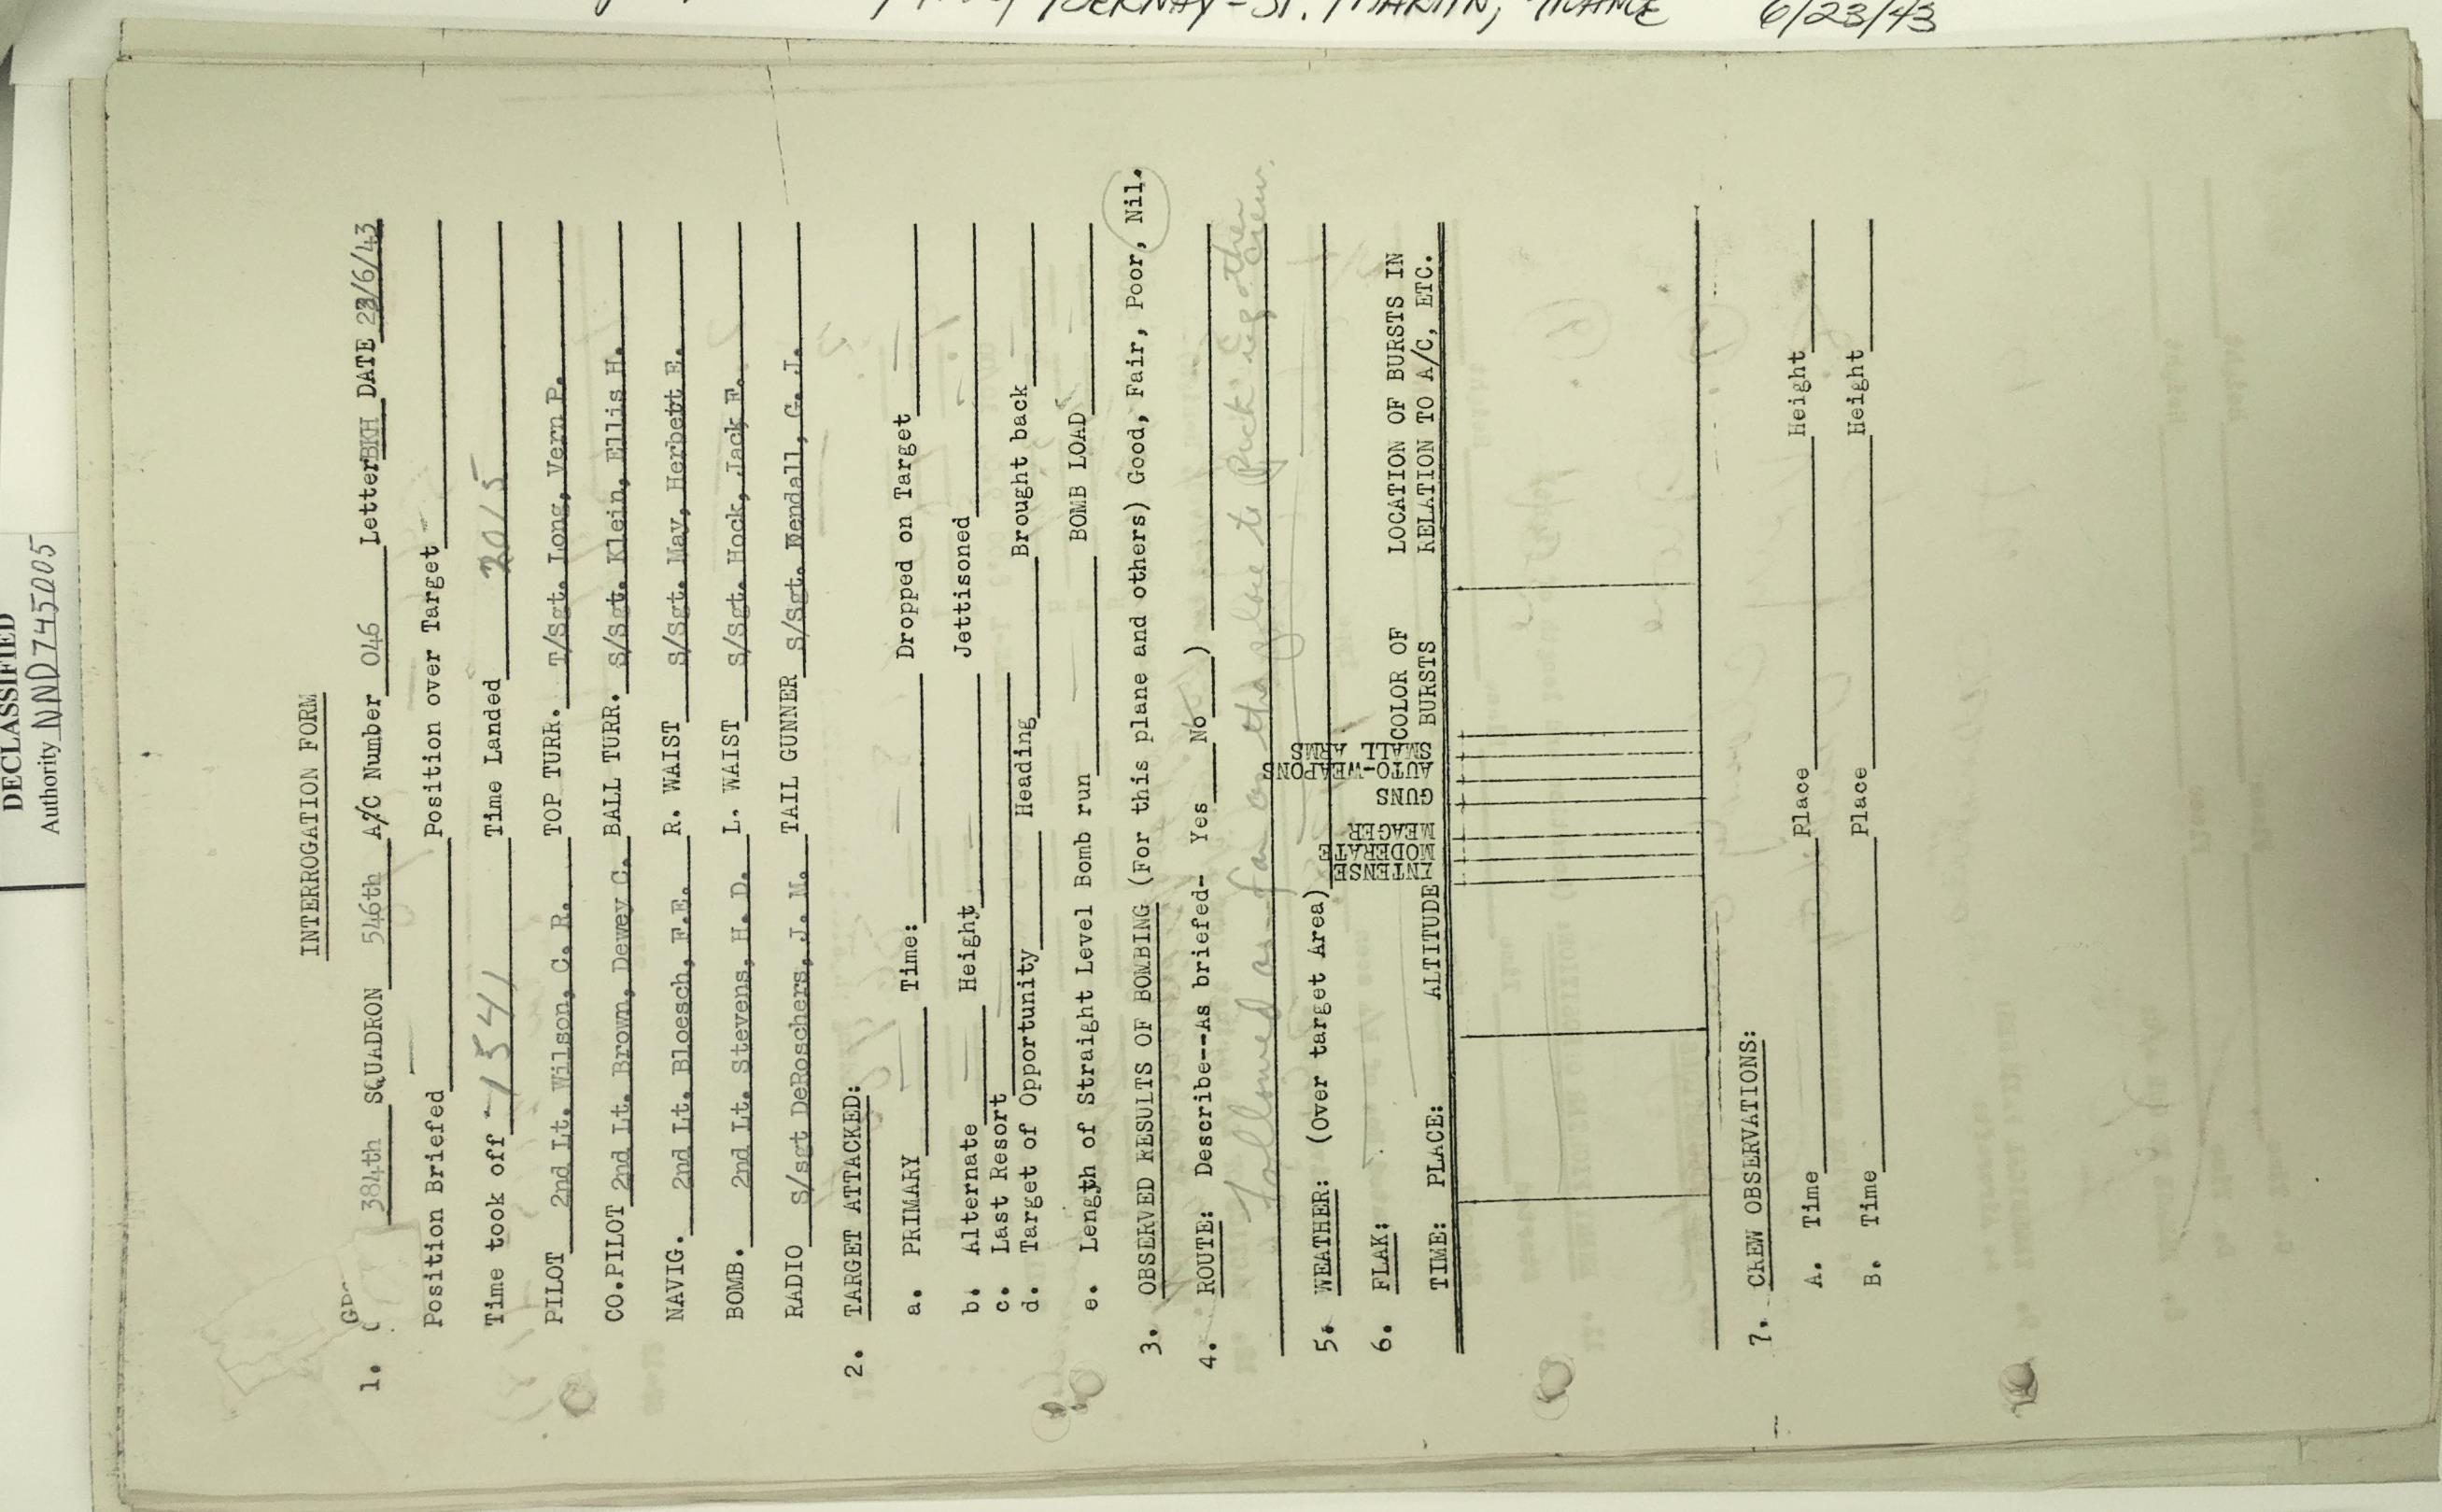 BERNAY-ST. MARTIN, FRANCE 6/23/43
DECLASSIFIED
Authority NND 745005
INTERROGATION FORM
1. GP 384th SQUADRON 546th A/C Number 046 Letter BKH DATE 23/6/43
Position Briefed Position over Target
Time took off 1541 Time Landed 2015
PILOT 2nd Lt. Wilson, C. R. TOP TURR. T/Sgt. Long, Vern P.
CO.PILOT 2nd Lt. Brown, Dewey C. BALL TURR. S/Sgt. Klein, Ellis H.
NAVIG. 2nd Lt. Bloesch, F.E. R. WAIST S/Sgt. May, Herbett E.
BOMB. 2nd Lt. Stevens, H. D. L. WAIST S/Sgt. Hock, Jack F.
RADIO S/sgt DeRoschers, J. M. TAIL GUNNER S/Sgt. Mendall, G. J.
2. TARGET ATTACKED:
a. PRIMARY Time: Dropped on Target
b. Alternate Height Jettisoned
c. Last Resort
d. Target of Opportunity Heading Brought back
e. Length of Straight Level Bomb run BOMB LOAD
3. OBSERVED RESULTS OF BOMBING (For this plane and others) Good, Fair, Poor, Nil.
4. ROUTE: Describe--As briefed- Yes No )
Followed as far as to other
crew.
5. WEATHER: (Over target Area)
6. FLAK:
TIME: PLACE: ALTITUDE INTENSE MODERATE MEAGER GUNS AUTO-WEAPONS SMALL ARMS COLOR OF BURSTS LOCATION OF BURSTS IN
RELATION TO A/C, ETC.
7. CREW OBSERVATIONS:
A. Time Place Height
B. Time Place Height